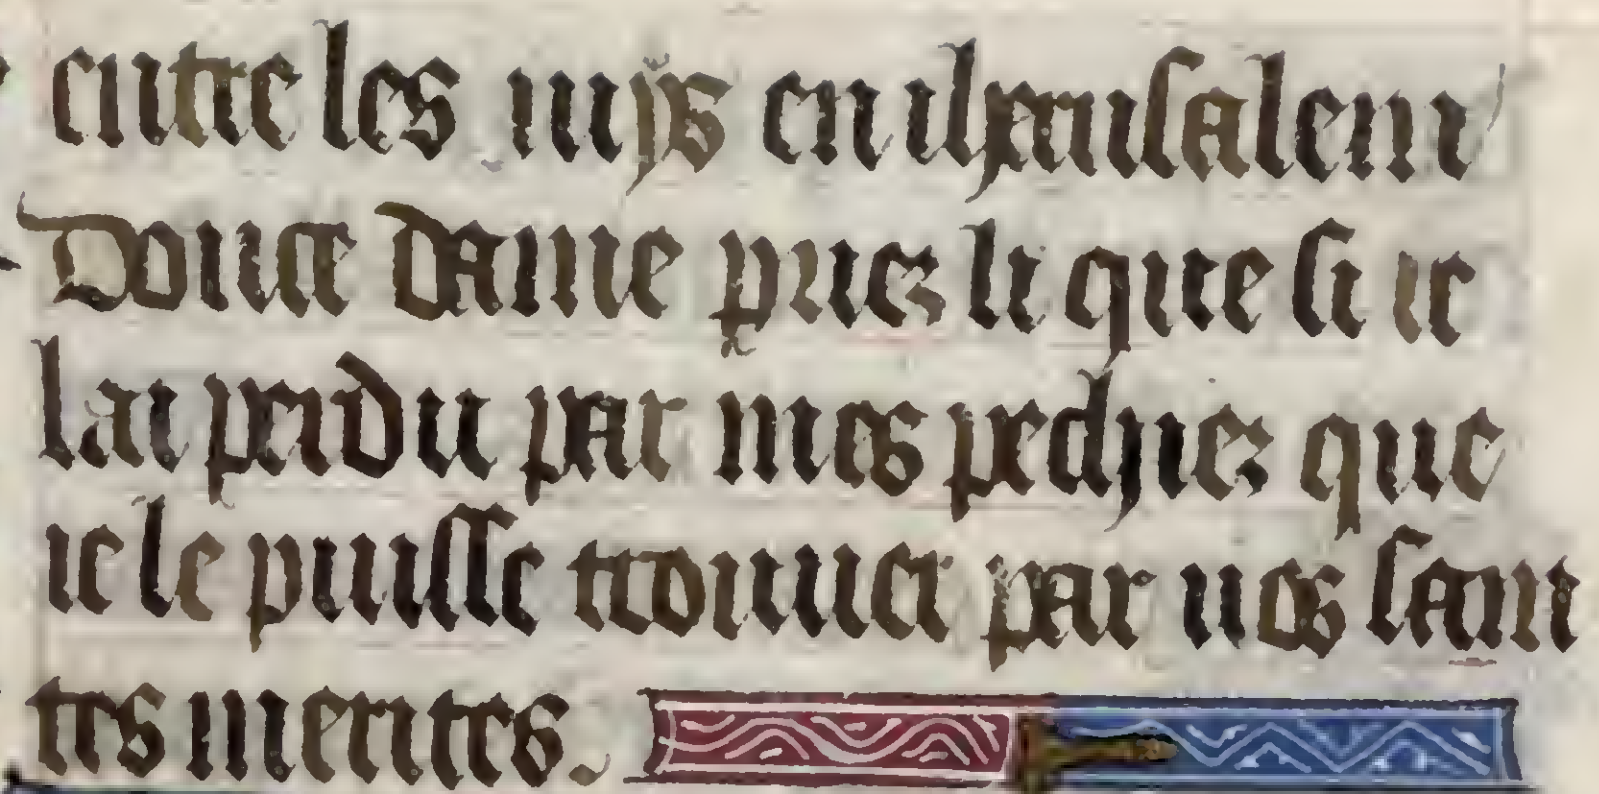 entre les iuijs en iherusalem
Douce dame priez li que si ie
lai perdu par mes pechiez que
ie le puisse trouuer par uos sain
tes merites.